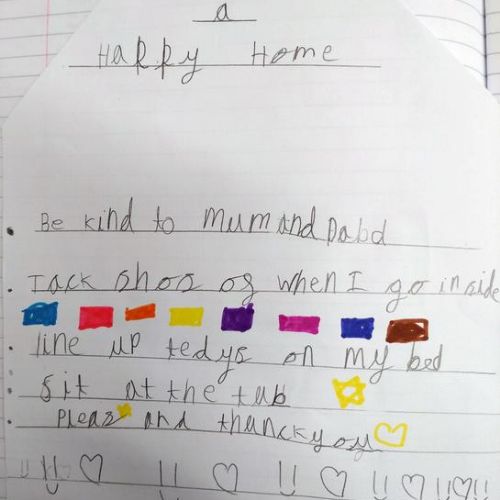 a
Happy Home
Be kind to mum and Dabd
Tack shos of when I go inside
line up tedys on my bed
sit at the tab
Pleas and thanckyou
!! !! !! !! !!